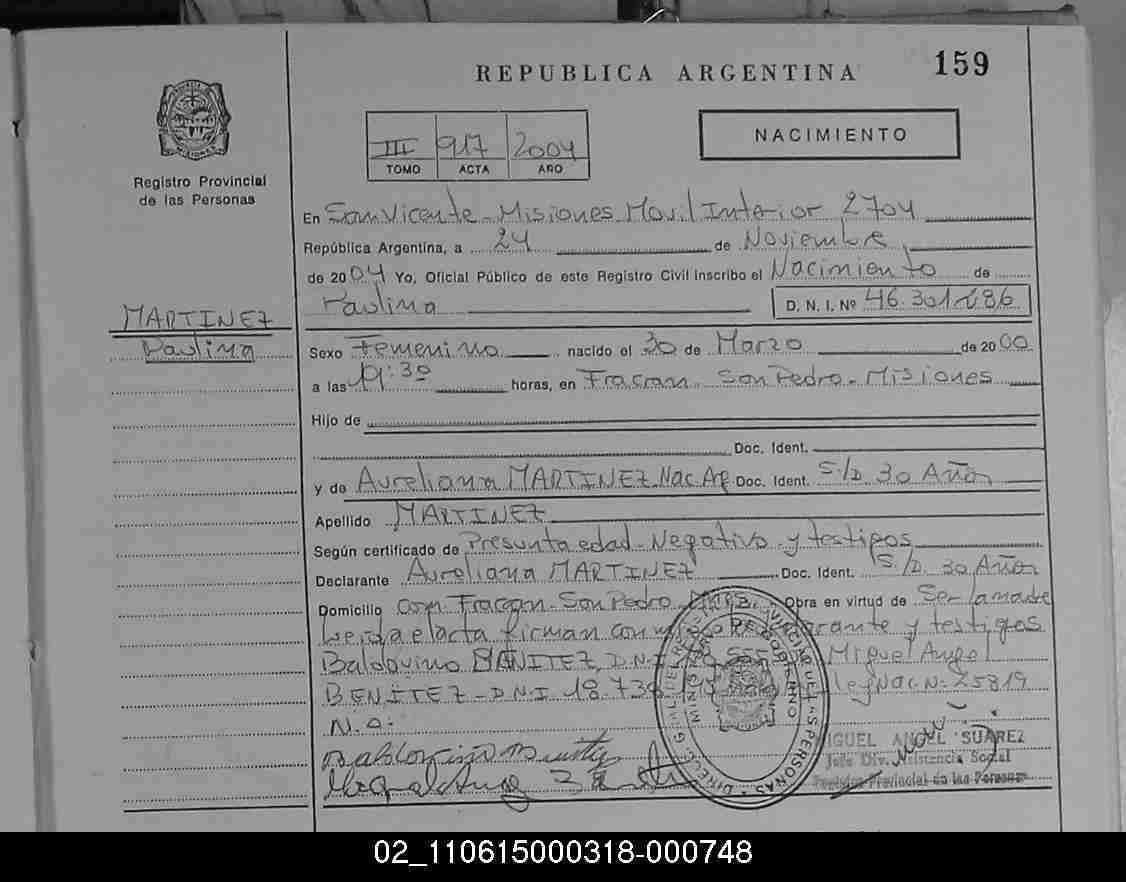 REPUBLICA ARGENTINA
159
MISIONES
Registro Provincial
de las Personas
III 917 2004
TOMO ACTA AÑO
NACIMIENTO
En San Vicente - Misiones Movil Interior 2704
República Argentina, a 24 de Noviembre
de 2004 Yo, Oficial Público de este Registro Civil inscribo el Nacimiento de
Paulina D. N. I. Nº 46.301.286
MARTINEZ
Paulina
Sexo Femenino nacido el 30 de Marzo de 2000
a las 19:30 horas, en Fracran San Pedro - Misiones
Hijo de
Doc. Ident.
y de Aureliana MARTINEZ Nac. Ag Doc. Ident. S./D. 30 Años
Apellido MARTINEZ
Según certificado de Presunta edad - Negativo y testigos
Declarante Aureliana MARTINEZ Doc. Ident. S./D. 30 Años
Domicilio com. Fracran - San Pedro Obra en virtud de Ser la madre
Leida el acta firman conmigo y testigos
Baldovino BENITEZ D.N.I. Miguel Angel
BENITEZ - D.N.I 18.739 Ley Nac. N: 25819
N.o:
MIGUEL ANGEL SUAREZ
Jefe Div. Asistencia Social
Registro Provincial de las Personas
02_110615000318-000748